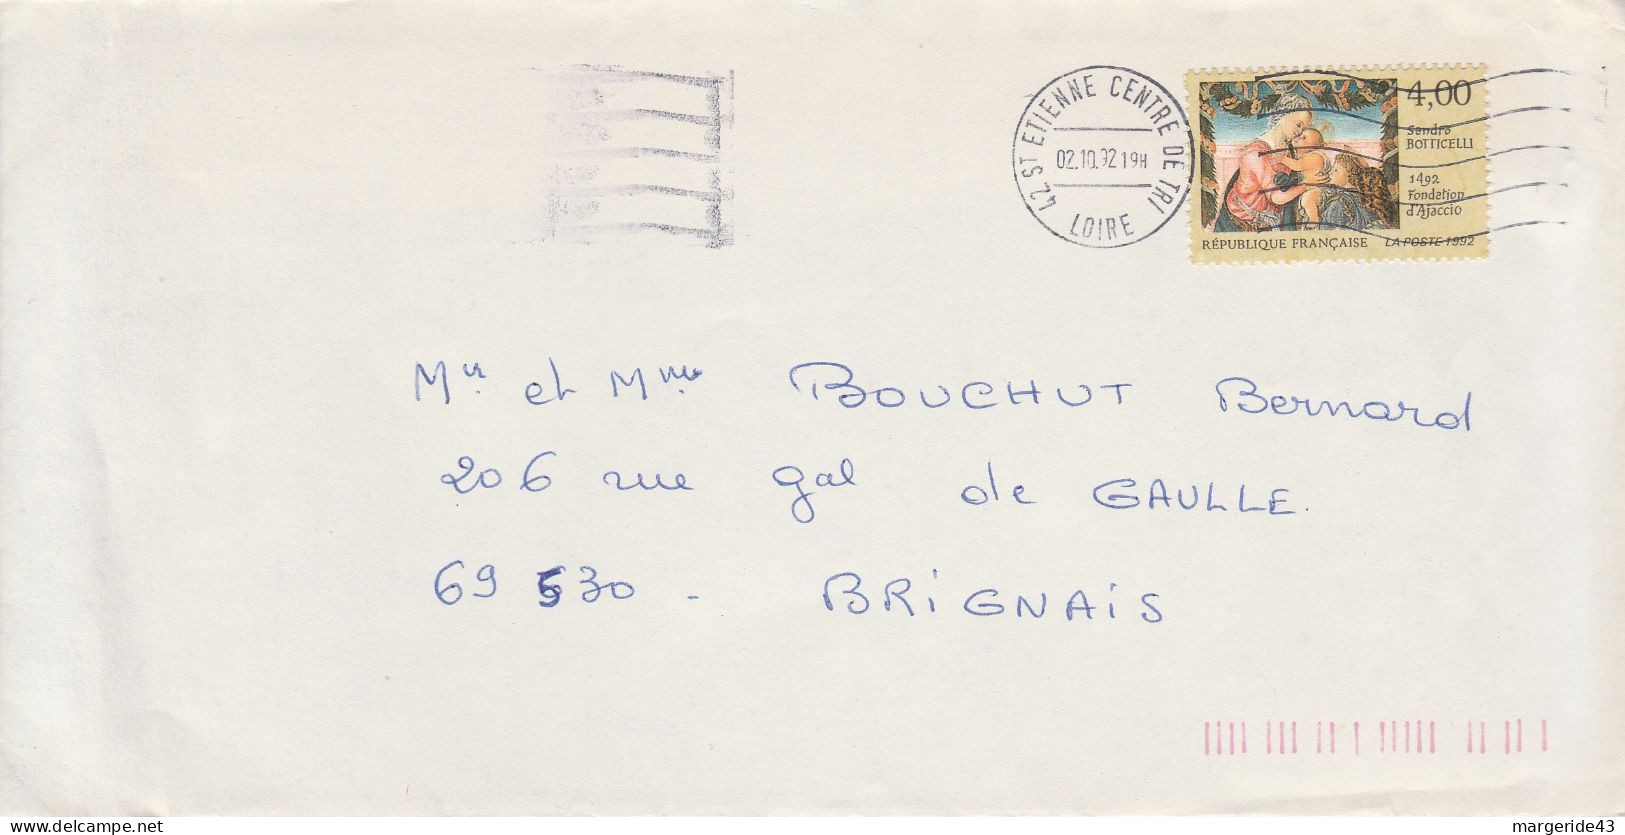 42 ST ETIENNE CENTRE DE TRI
02.10.92 19H
LOIRE
4,00
Sandro
BOTTICELLI
1492
Fondation
d'Ajaccio
RÉPUBLIQUE FRANÇAISE LA POSTE 1992
Mr et Mme BOUCHUT Bernard
206 rue gal de GAULLE.
69 530 - BRIGNAIS
delcampe.net
margeride43